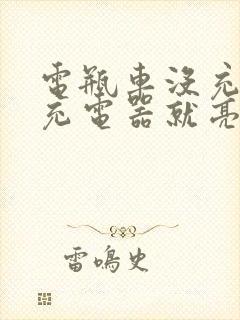 電瓶車沒充
充電器就亮
雷鳴史